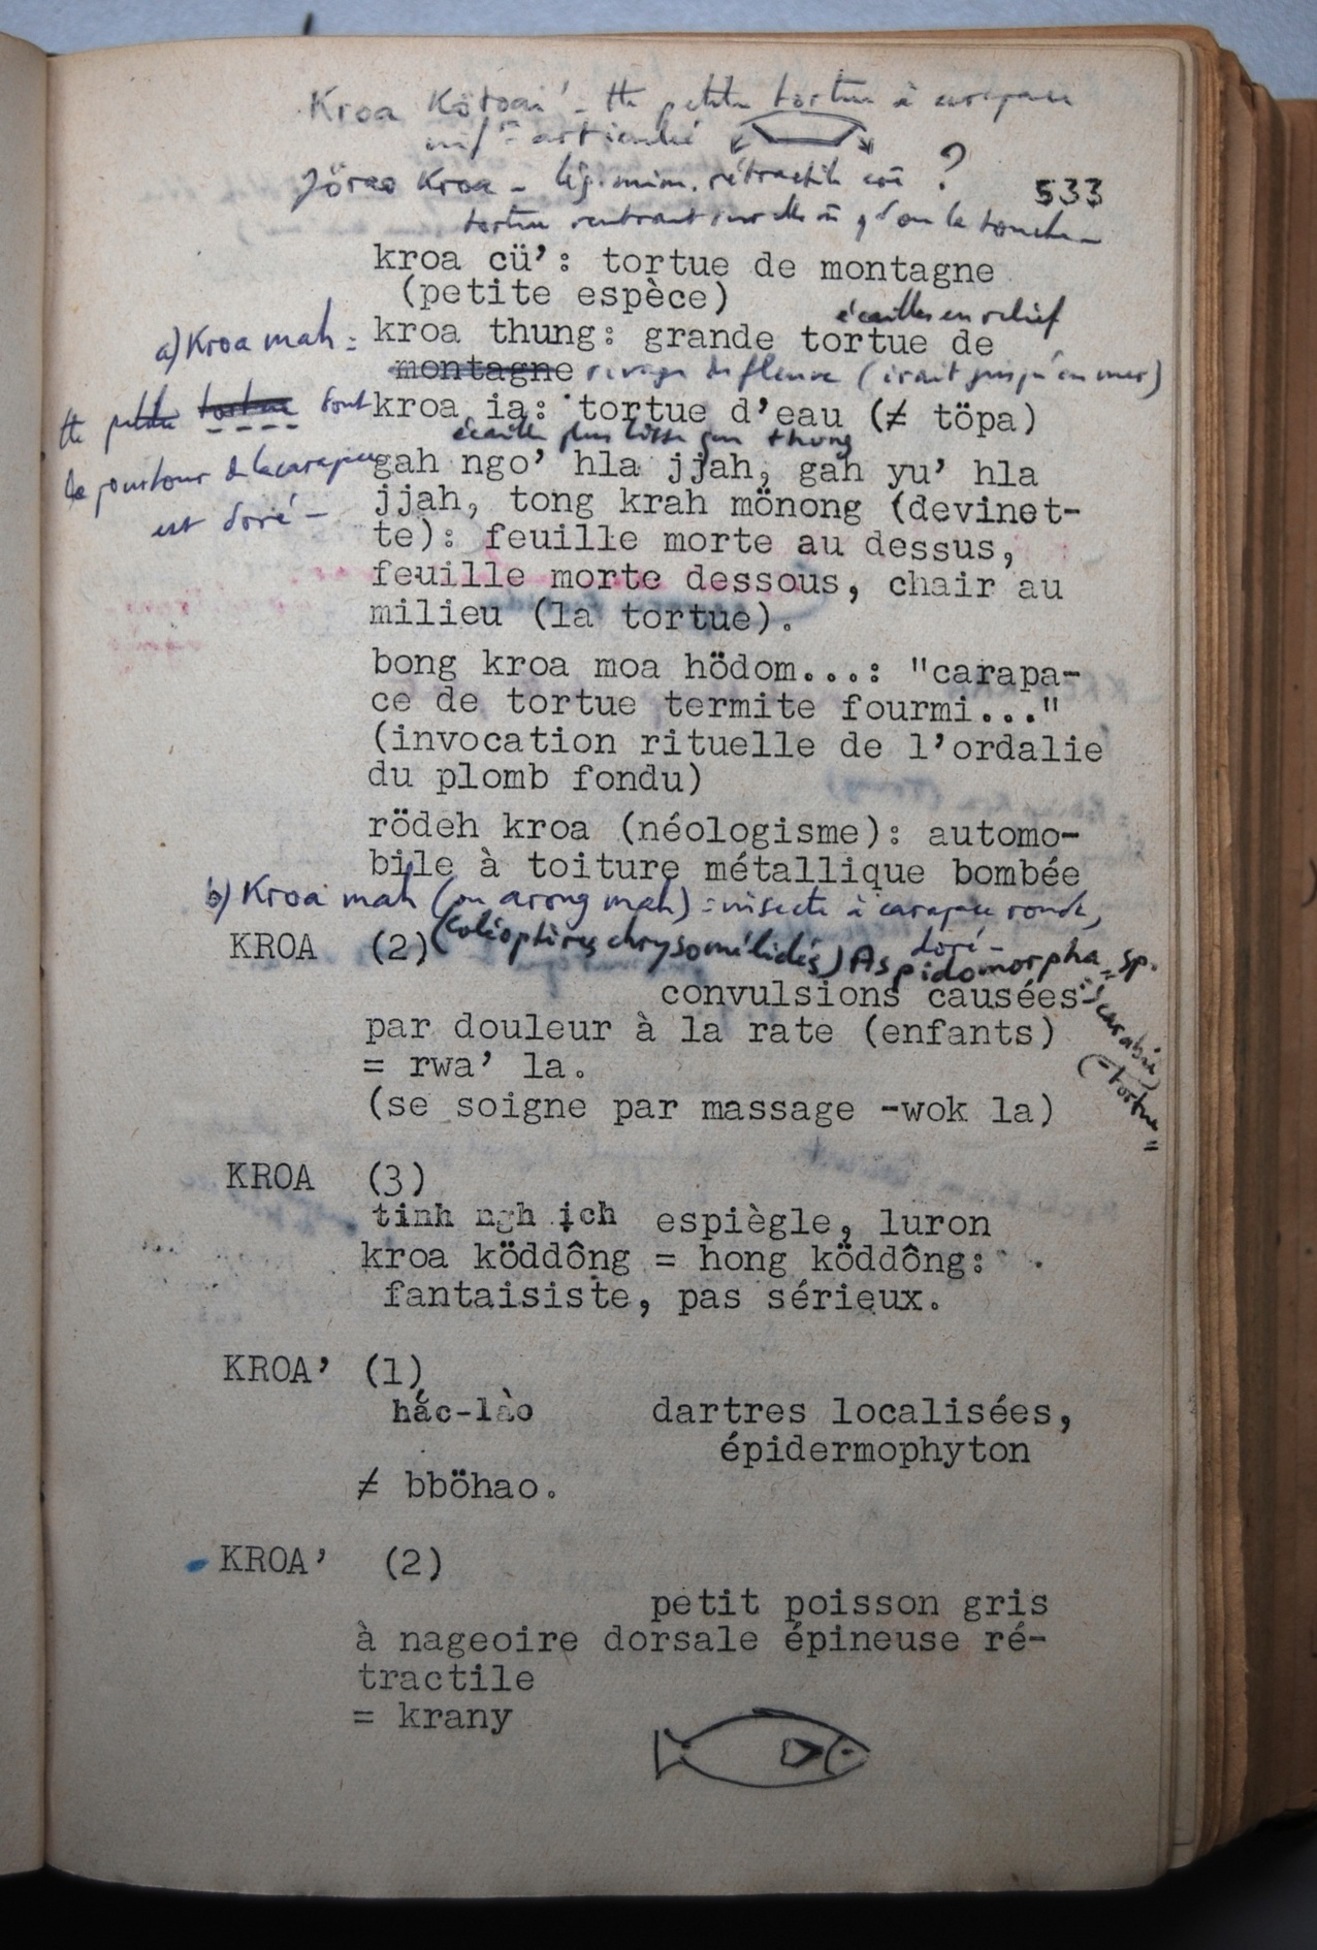 Kroa Kötoai' - tte petite tortue à carapace
inf. articulé
Jörao Kroa - lég. mim. rétractile coē ?
533
tortue rentrant sur elle-m̄ qd on la touche -
kroa cü’: tortue de montagne
(petite espèce)
écailles en relief
a) Kroa mah = kroa thung: grande tortue de
montagne rivage du fleuve (irait jusqu'en mer)
tte petite tortue dont kroa ia: tortue d’eau (≠ töpa)
écaille plus lisse que thung
le pourtour de la carapace gah ngo’ hla jjah, gah yu’ hla
est doré - jjah, tong krah mönong (devinet-
te): feuille morte au dessus,
feuille morte dessous, chair au
milieu (la tortue).
bong kroa moa hödom...: "carapa-
ce de tortue termite fourmi..."
(invocation rituelle de l’ordalie
du plomb fondu)
rödeh kroa (néologisme): automo-
bile à toiture métallique bombée
b) Kroa mah (ou arong mah) = insecte à carapace ronde,
doré -
KROA (2) (Coléoptères chrysomélidés) Aspidomorpha sp.
convulsions causées
par douleur à la rate (enfants)
= rwa’ la.
(se soigne par massage -wok la)
(= tortue =
KROA (3)
tinh nghịch espiègle, luron
kroa köddông = hong köddông:
fantaisiste, pas sérieux.
KROA’ (1)
hắc-lào dartres localisées,
épidermophyton
≠ bböhao.
KROA’ (2)
petit poisson gris
à nageoire dorsale épineuse ré-
tractile
= krany